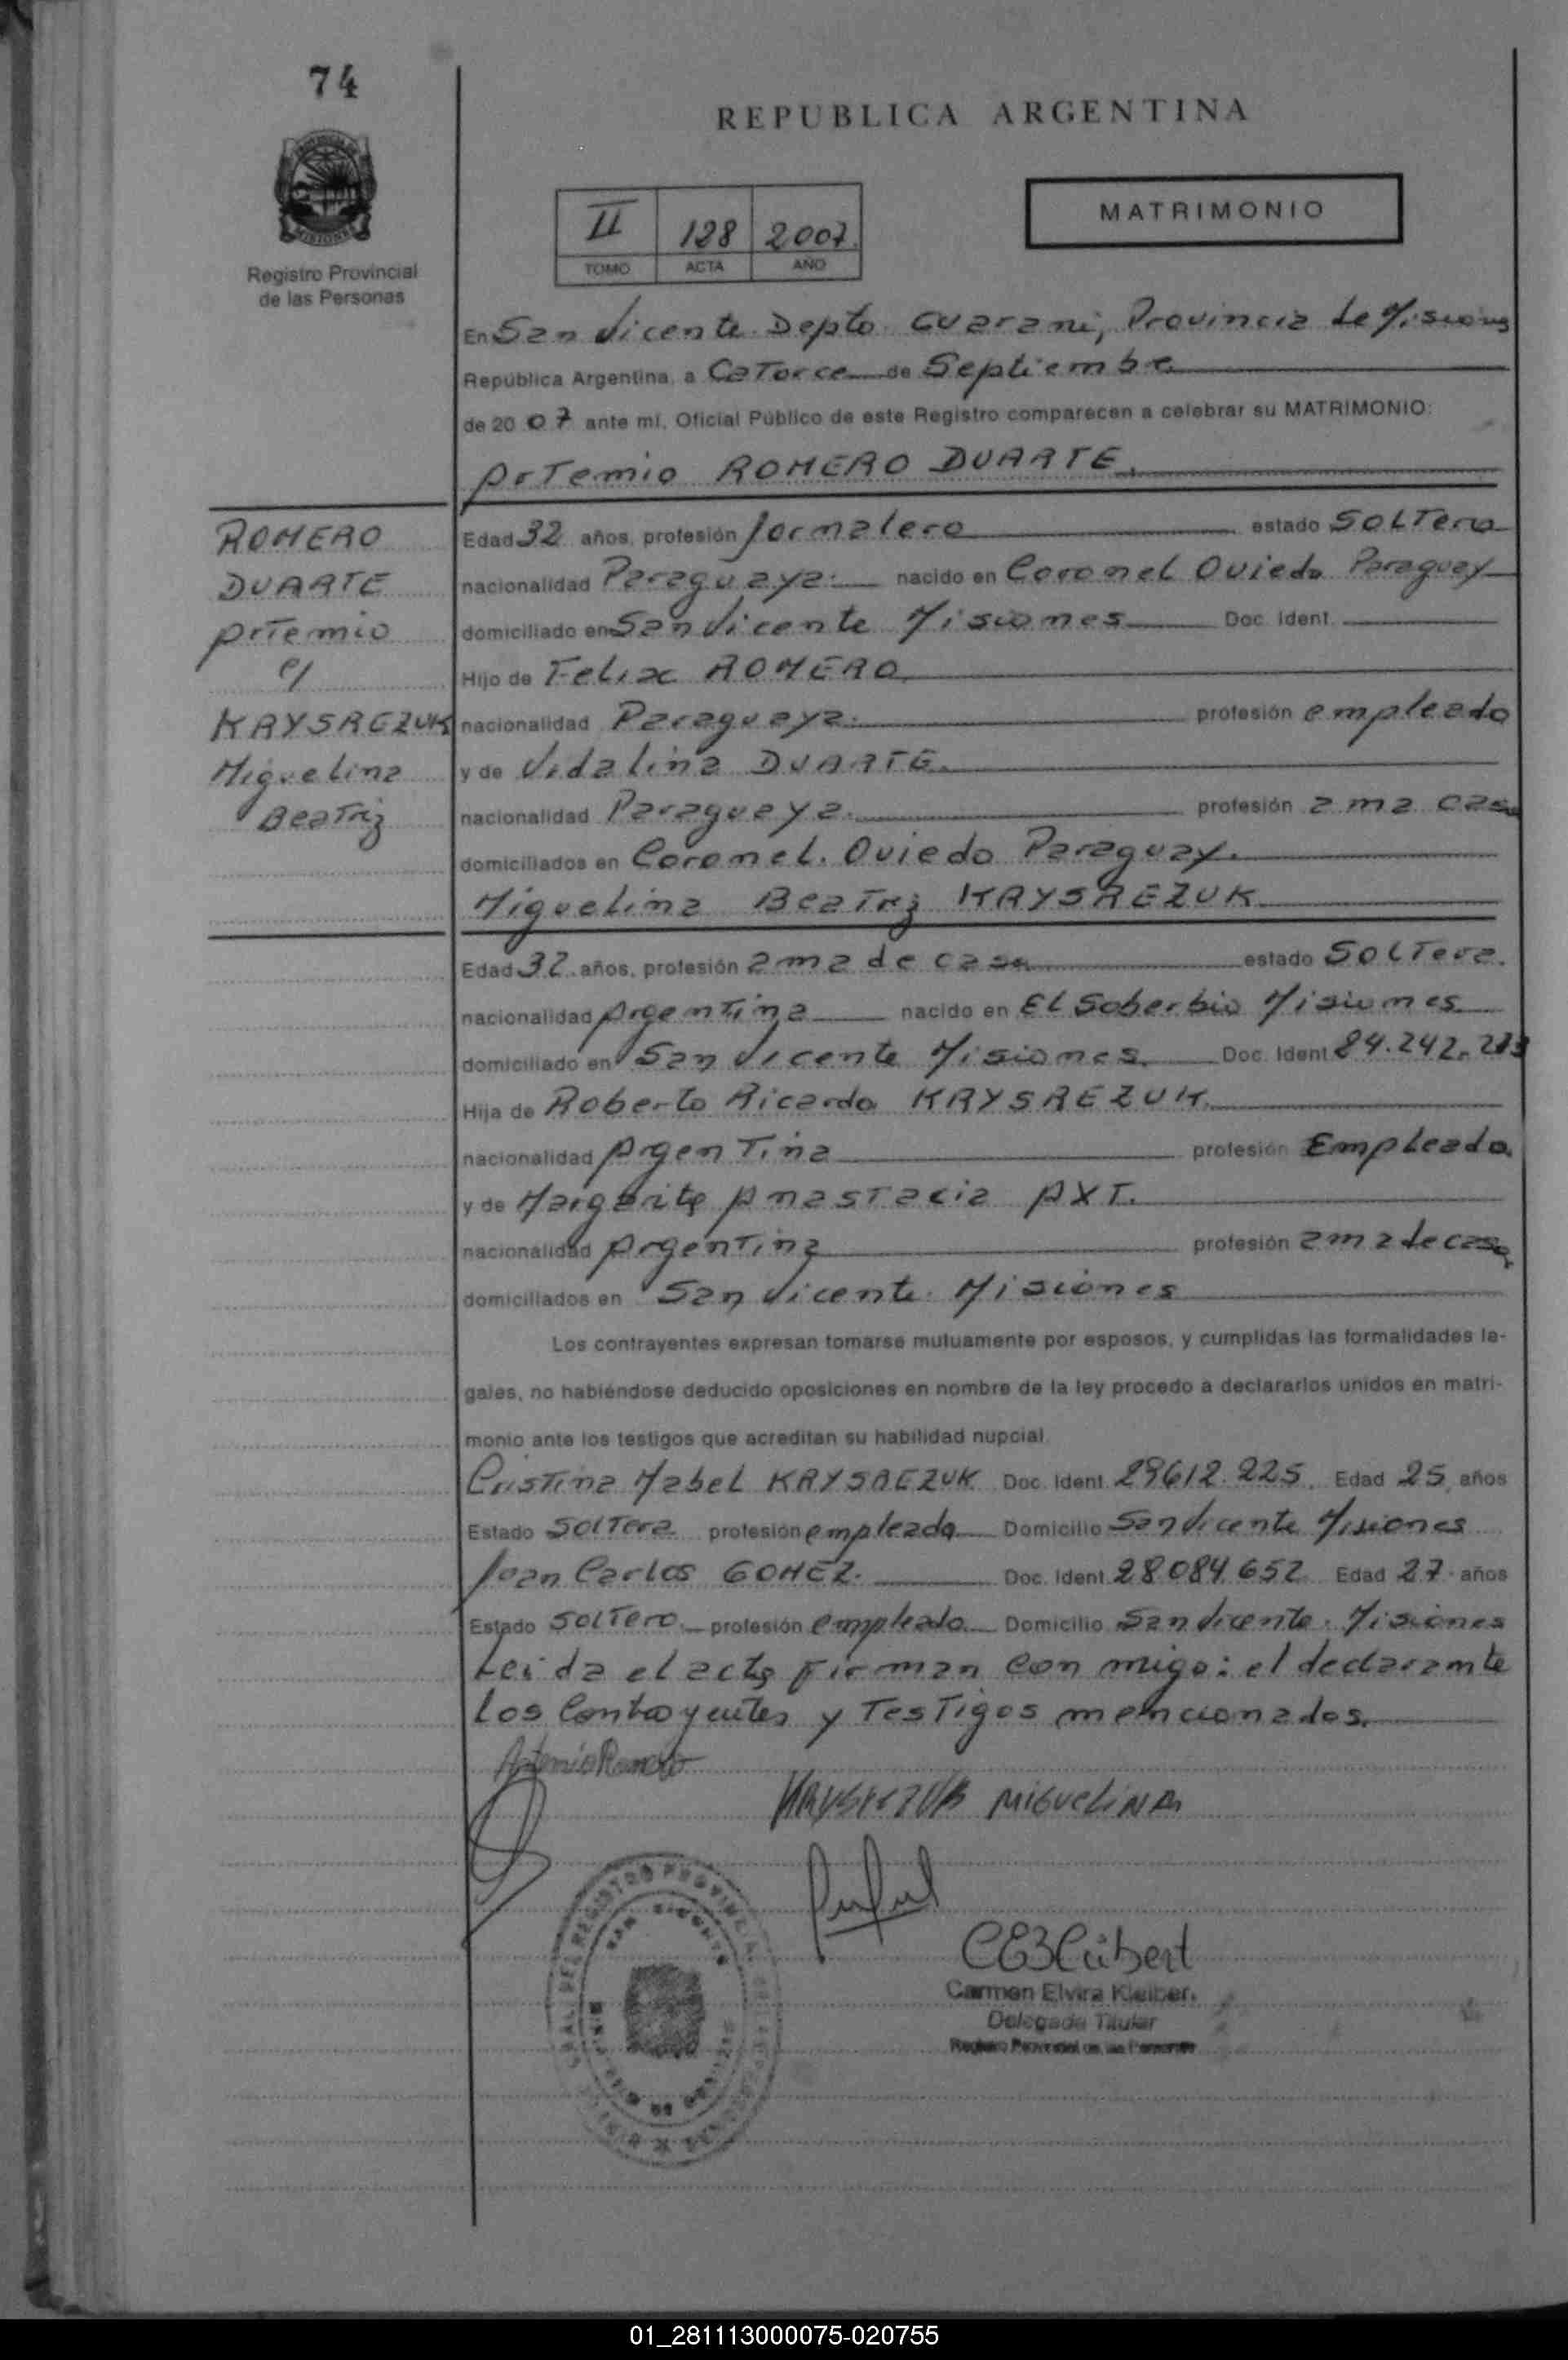 74
REPUBLICA ARGENTINA
PROVINCIA DE
MISIONES
Registro Provincial
de las Personas
II 128 2007
TOMO ACTA AÑO
MATRIMONIO
En San Vicente Depto. Guarani, Provincia de Misiones
República Argentina, a Catorce de Septiembre
de 2007 ante mi, Oficial Público de este Registro comparecen a celebrar su MATRIMONIO:
Artemio ROMERO DUARTE.
ROMERO
DUARTE
Artemio
c/
KRYSREZUK
Miguelina
Beatriz
Edad 32 años, profesión Jornalero estado SOLTero
nacionalidad Paraguaya. nacido en Coronel Oviedo Paraguay
domiciliado en San Vicente Misiones Doc. Ident.
Hijo de Felix ROMERO
nacionalidad Paraguaya. profesión empleado
y de Vidalina DUARTE.
nacionalidad Paraguaya. profesión ama casa
domiciliados en Coronel. Oviedo Paraguay.
Miguelina Beatriz KRYSREZUK
Edad 32 años, profesión ama de casa estado SOLTera.
nacionalidad Argentina nacido en El Soberbio Misiones
domiciliado en San Vicente Misiones. Doc. Ident. 84.242.
Hija de Roberto Ricardo KRYSREZUK.
nacionalidad Argentina profesión Empleado.
y de Margarita Anastacia AXT.
nacionalidad Argentina profesión ama de casa
domiciliados en San Vicente. Misiones
Los contrayentes expresan tomarse mutuamente por esposos, y cumplidas las formalidades le-
gales, no habiéndose deducido oposiciones en nombre de la ley procedo a declararlos unidos en matri-
monio ante los testigos que acreditan su habilidad nupcial.
Cristina Mabel KRYSREZUK Doc. Ident. 29612.225. Edad 25 años
Estado SOLTera profesión empleada Domicilio San Vicente Misiones
Juan Carlos GOMEZ. Doc. Ident. 28084.652 Edad 27 años
Estado SOLTero profesión empleado Domicilio San Vicente. Misiones
Leida el acta firman con migo: el declarante
los Contrayentes y Testigos mencionados.
Artemio Romero
KRYSREZUK MIGUELINA
Carmen Elvira Kleiber.
Delegada Titular
Registro Provincial de las Personas
01_281113000075-020755